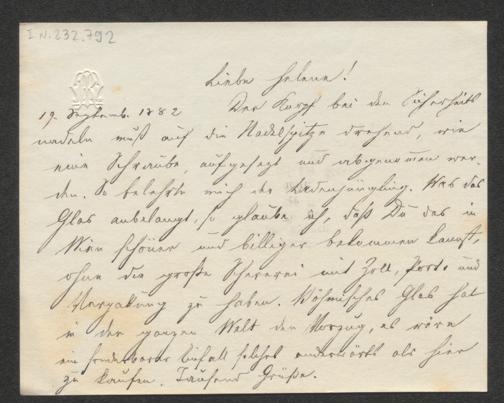 I.N. 232.792
Liebe Helene!
19. Septemb. 1882 Der Knopf bei den Sicherheits
nadeln muß auf die Nadelspitze drehend, wie
eine Schraube, aufgesetzt und abgenommen wer-
den. So belehrte mich der Ladenjüngling. Was das
Glas anbelangt, so glaube ich, daß Du das in
Wien schöner und billiger bekommen kannst,
ohne die große Schererei mit Zoll, Porto und
Verpackung zu haben. Böhmisches Glas hat
in der ganzen Welt den Vorzug, es wäre
ein sonderbarer Einfall solches anderswärts als hier
zu kaufen. Tausend Grüße.